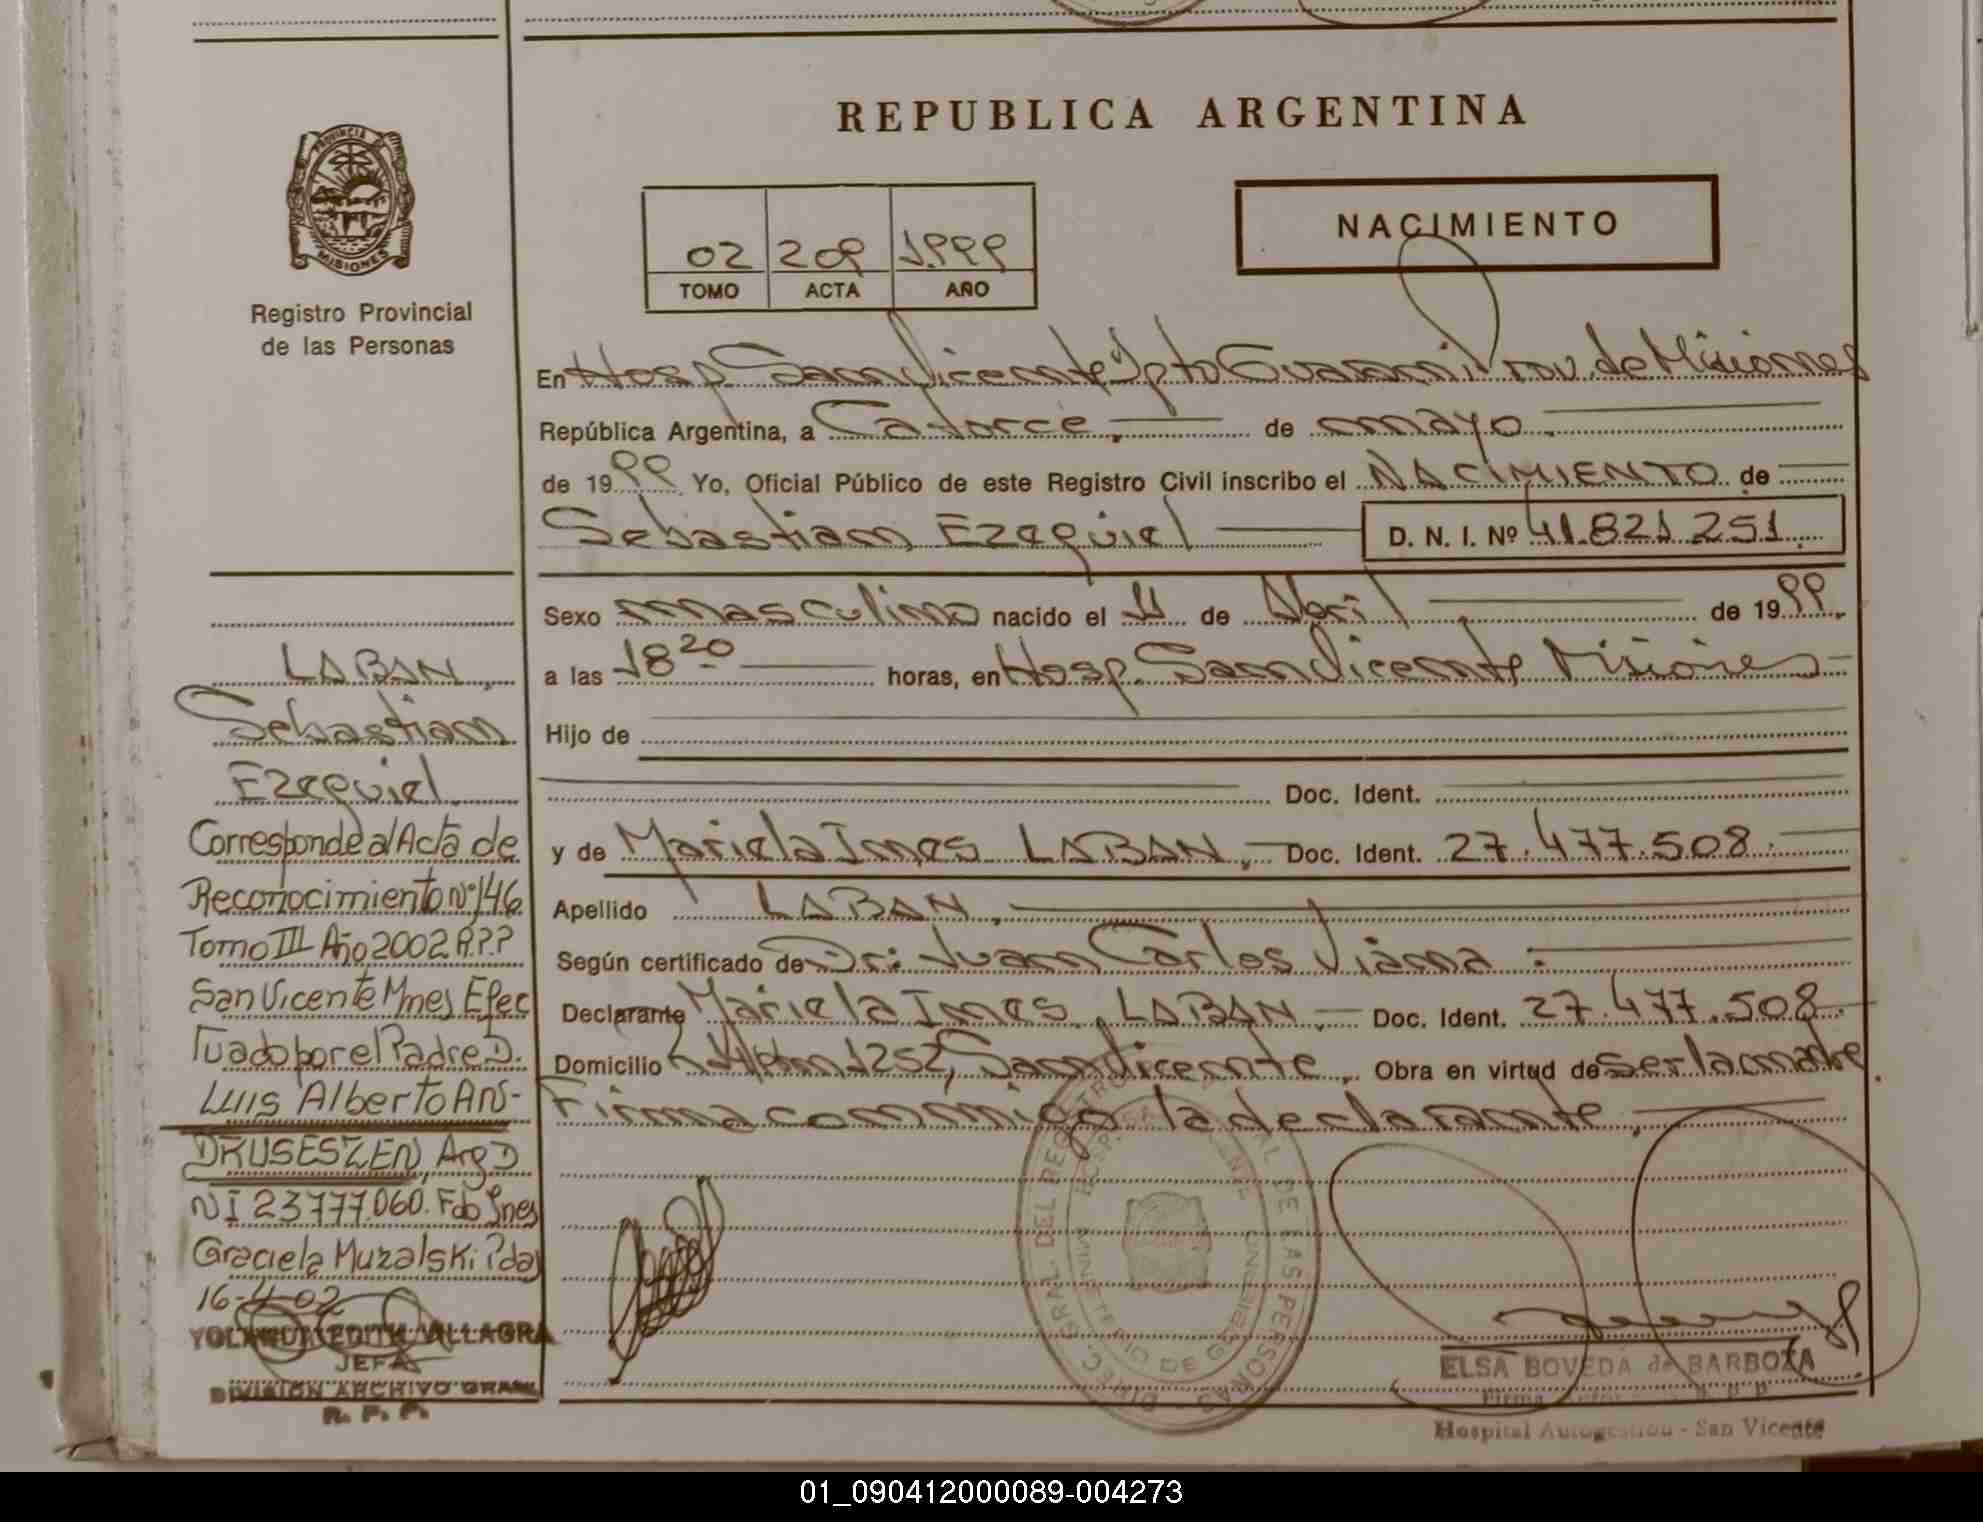 REPUBLICA ARGENTINA
PROVINCIA
MISIONES
Registro Provincial
de las Personas
NACIMIENTO
02 209 1.999
TOMO ACTA AÑO
En Hosp. San Vicente Dpto Guarani Prov. de Misiones
República Argentina, a Catorce. de mayo.
de 1999 Yo, Oficial Público de este Registro Civil inscribo el NACIMIENTO de
Sebastian Ezequiel D. N. I. Nº 41.821.251.
Sexo masculino nacido el 11 de Abril de 1999
a las 18 20 horas, en Hosp. San Vicente Misiones
Hijo de
Doc. Ident.
y de Mariela Ines LABAN, Doc. Ident. 27.477.508.
Apellido LABAN.
Según certificado de Dr: Juan Carlos Viana.
Declarante Mariela Ines LABAN, Doc. Ident. 27.477.508.
Domicilio Km 1252, San Vicente, Obra en virtud de ser la madre
Firma conmigo la declarante.
LABAN,
Sebastian
Ezequiel
Corresponde al Acta de
Reconocimiento Nº 146
Tomo III Año 2002 R.P.P
San Vicente Mnes Efec
Tuado por el Padre D.
Luis Alberto AN-
DRUSESZEN, Arg D
NI 23777.060. Fdo Ines
Graciela Muzalski Pda
16-4-02
YOLANDA EDITH VILLAGRA
JEFA
DIVISION ARCHIVO GRAL
R. P. P.
DIREC. GRAL. DEL REGISTRO PROVINCIAL DE LAS PERSONAS
MINISTERIO DE GOBIERNO
ELSA BOVEDA de BARBOZA
Hospital Autogestion - San Vicente
01_090412000089-004273